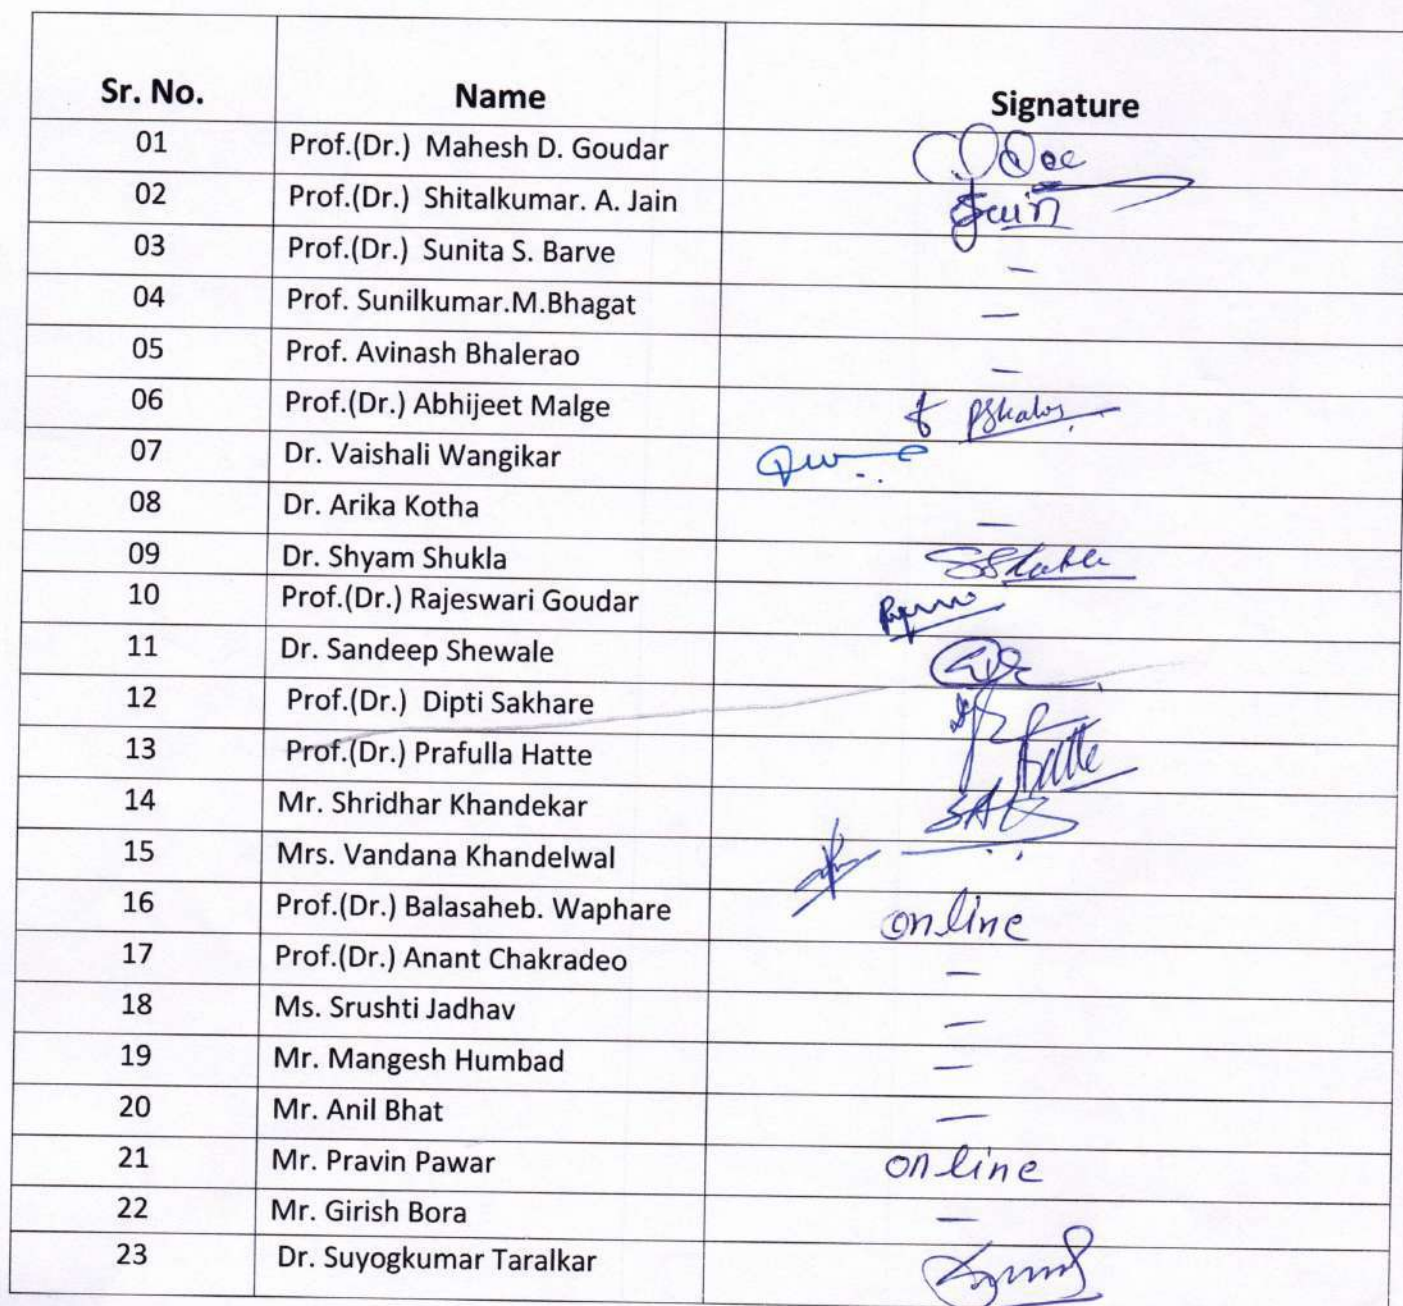 Sr. No. Name Signature
01 Prof.(Dr.) Mahesh D. Goudar
02 Prof.(Dr.) Shitalkumar. A. Jain Jain
03 Prof.(Dr.) Sunita S. Barve –
04 Prof. Sunilkumar.M.Bhagat –
05 Prof. Avinash Bhalerao –
06 Prof.(Dr.) Abhijeet Malge
07 Dr. Vaishali Wangikar
08 Dr. Arika Kotha –
09 Dr. Shyam Shukla
10 Prof.(Dr.) Rajeswari Goudar
11 Dr. Sandeep Shewale
12 Prof.(Dr.) Dipti Sakhare
13 Prof.(Dr.) Prafulla Hatte Hatte
14 Mr. Shridhar Khandekar
15 Mrs. Vandana Khandelwal
16 Prof.(Dr.) Balasaheb. Waphare online
17 Prof.(Dr.) Anant Chakradeo –
18 Ms. Srushti Jadhav –
19 Mr. Mangesh Humbad –
20 Mr. Anil Bhat –
21 Mr. Pravin Pawar online
22 Mr. Girish Bora –
23 Dr. Suyogkumar Taralkar